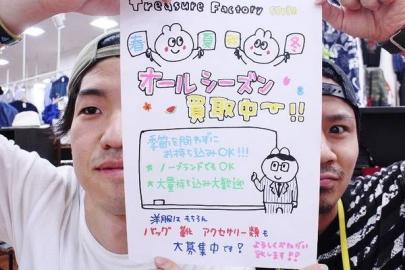 Treasure Factory
春 夏 秋 冬
オールシーズン
買取中〜!!
季節を問わずに
お持ち込みOK!!!
★ ノーブランドでもOK
★ 大量持ち込み大歓迎
洋服は もちろん
バッグ 靴 アクセサリー類も
大募集中です?
よろしくおねがい
致します!!